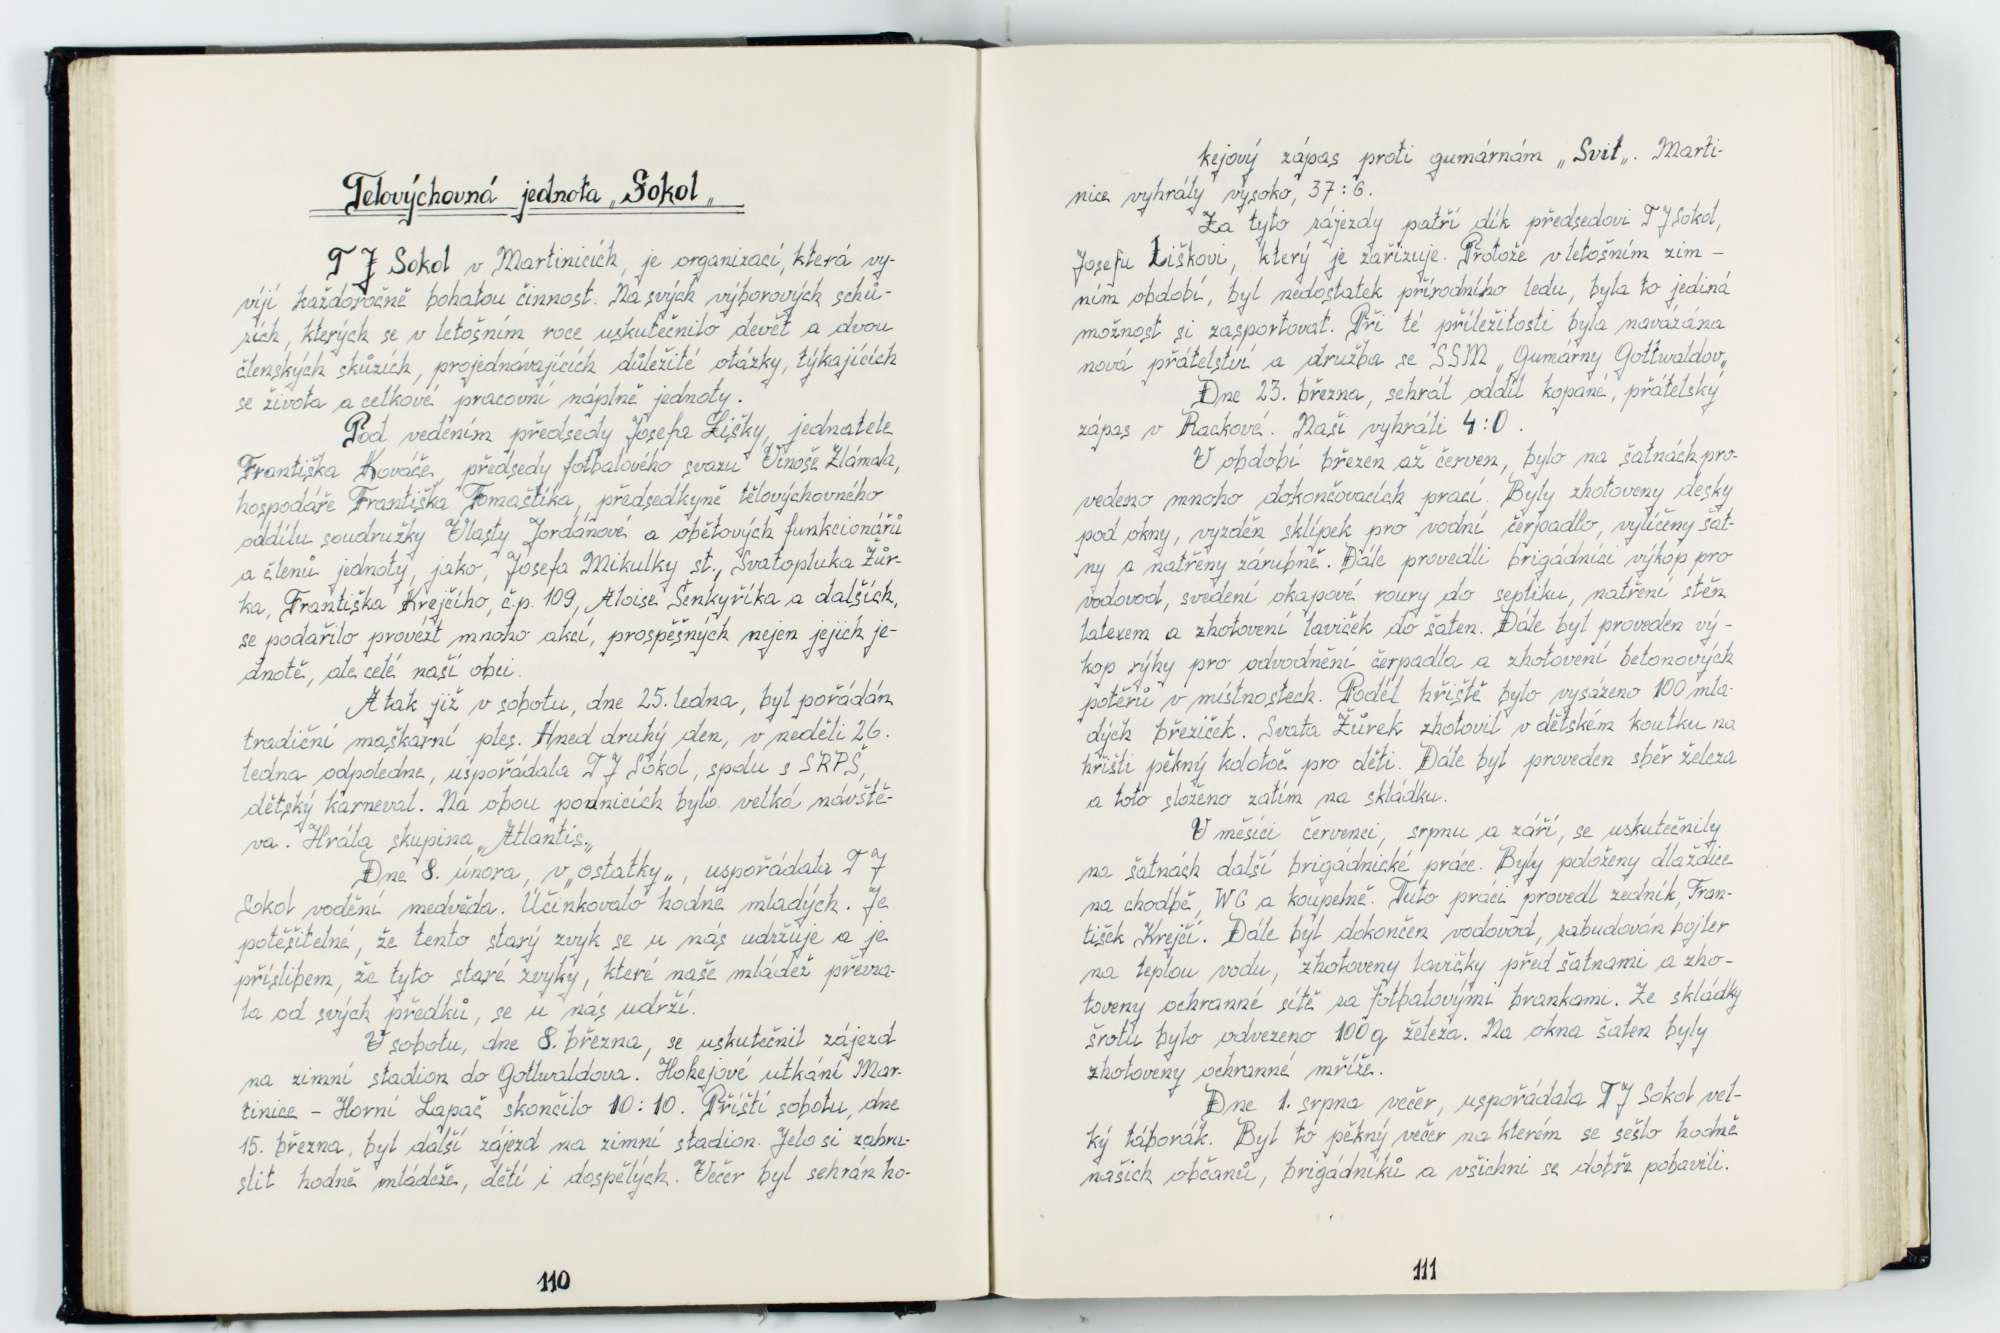 Telovýchovná jednota „Sokol„
T J Sokol v Martinicích, je organizací, která vy-
víjí každoročně bohatou činnost. Na svých výborových schů-
zích, kterých se v letošním roce uskutečnilo devět a dvou
členských skůzích, projednávajících důležité otázky, týkajících
se života a celkové pracovní náplně jednoty.
Pod vedením předsedy Josefa Lišky, jednatele
Františka Kováče, předsedy fotbalového svazu Vinoše Zlámala,
hospodáře Františka Tomaštíka, předsedkyně tělovýchovného
oddílu soudružky Vlasty Jordánové a obětových funkcionářů
a členů jednoty, jako, Josefa Mikulky st., Svatopluka Žůr-
ka, Františka Krejčího, č.p. 109, Aloise Šenkyříka a dalších,
se podařilo provézt mnoho akcí, prospěšných nejen jejich je-
dnotě, ale celé naší obci.
A tak již v sobotu, dne 25. ledna, byl pořádán
tradiční maškarní ples. Hned druhý den, v neděli 26.
ledna odpoledne, uspořádala T J Sokol, spolu s SRPŠ,
dětský karneval. Na obou podnicích bylo velká návště-
va. Hrála skupina „Atlantis„
Dne 8. února, v „ostatky„, uspořádala T J
Sokol vodění medvěda. Účinkovalo hodně mladých. Je
potěšitelné, že tento starý zvyk se u nás udržuje a je
příslibem, že tyto staré zvyky, které naše mládež převza-
la od svých předků, se u nás udrží.
V sobotu, dne 8. března, se uskutečnil zájezd
na zimní stadion do Gottwaldova. Hokejové utkání Mar-
tinice – Horní Lapač skončilo 10:10. Příští sobotu, dne
15. března, byl další zájezd na zimní stadion. Jelo si zabru-
slit hodně mládeže, dětí i dospělých. Večer byl sehrán ho-
110
kejový zápas proti gumárnám „Svit„. Marti-
nice vyhrály vysoko, 37:6.
Za tyto zájezdy patří dík předsedovi T J Sokol,
Josefu Liškovi, který je zařizuje. Protože v letošním zim –
ním období, byl nedostatek přírodního ledu, byla to jediná
možnost si zasportovat. Při té příležitosti byla navázána
nová přátelství a družba se SSM „Gumárny Gottwaldov„
Dne 23. března, sehrál oddíl kopané, přátelský
zápas v Rackové. Naši vyhráli 4:0.
V období březen až červen, bylo na šatnách pro-
vedeno mnoho dokončovacích prací. Byly zhotoveny desky
pod okny, vyzděn sklípek pro vodní čerpadlo, vylíčeny šat-
ny a natřeny zárubně. Dále provedli brigádníci výkop pro
vodovod, svedení okapové roury do septiku, natření stěn
latexem a zhotovení laviček do šaten. Dále byl proveden vý-
kop rýhy pro odvodnění čerpadla a zhotovení betonových
potěrů v místnostech. Podél hřiště bylo vysázeno 100 mla-
dých březiček. Svata Žůrek zhotovil v dětském koutku na
hřišti pěkný kolotoč pro děti. Dále byl proveden sběr železa
a toto složeno zatím na skládku.
V měsíci červenci, srpnu a září, se uskutečnily
na šatnách další brigádnické práce. Byly položeny dlaždice
na chodbě, WC a koupelně. Tuto práci provedl zedník, Fran-
tišek Krejčí. Dále byl dokončen vodovod, zabudován bojler
na teplou vodu, zhotoveny lavičky před šatnami a zho-
toveny ochranné sítě za fotbalovými brankami. Ze skládky
šrotu bylo odvezeno 100 q železa. Na okna šaten byly
zhotoveny ochranné mříže.
Dne 1. srpna večer, uspořádala T J Sokol vel-
ký táborák. Byl to pěkný večer na kterém se sešlo hodně
našich občanů, brigádníků a všichni se dobře pobavili.
111